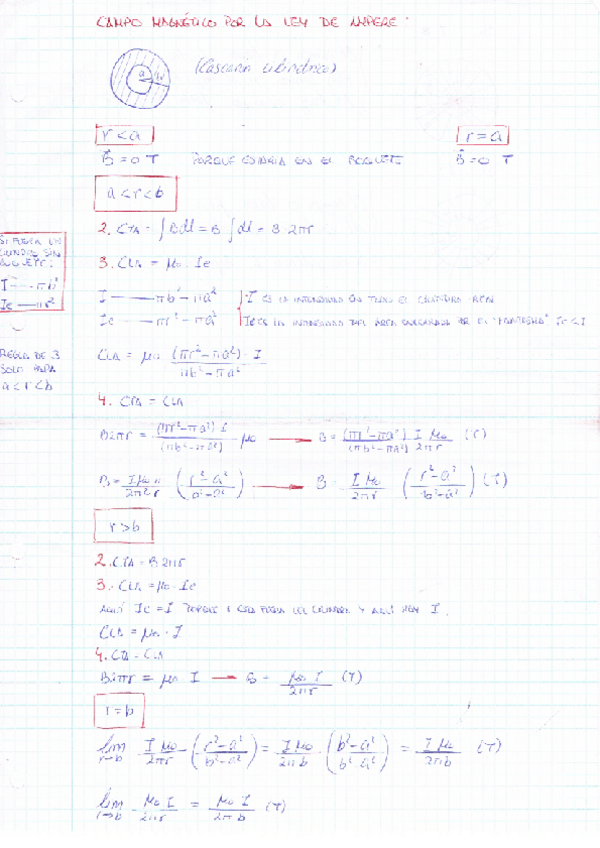 CAMPO MAGNÉTICO POR LA LEY DE AMPERE:
a
(Cascarón cilíndrico)
r < a
r = a
B⃗ = 0 T PORQUE ESTARÍA EN EL
B⃗ = 0 T
a < r < b
2. CTA = ∫ B dl = B ∫ dl = B 2πr
3. CLA = μ₀ · Ic
SI FUERA UN
CILINDRO SIN
I — πb²
Ic — πr²
I ——— πb² − πa²
I ES LA INTENSIDAD EN TODO EL CILINDRO
Ic ——— πr² − πa²
Ic ES LA INTENSIDAD DEL ÁREA ENCERRADA POR EL Ic < I
REGLA DE 3
SOLO PARA
a < r < b
CLA = μ₀ (πr² − πa²) · I / πb² − πa²
4. CTA = CLA
B 2πr = (πr² − πa²) I / (πb² − πa²) μ₀ → B = (πr² − πa²) / (πb² − πa²) I μ₀ / 2πr (T)
B = I μ₀ π / 2π² r (r² − a² / b² − a²) → B = I μ₀ / 2πr (r² − a² / b² − a²) (T)
r > b
2. CTA = B 2πr
3. CLA = μ₀ · Ic
AQUÍ Ic = I PORQUE FUERA DEL CILINDRO Y AQUÍ HAY I.
CLA = μ₀ · I
4. CTA = CLA
B 2πr = μ₀ I → B = μ₀ I / 2πr (T)
r = b
lim r→b I μ₀ / 2πr (r² − a² / b² − a²) = I μ₀ / 2πb · (b² − a² / b² − a²) = I μ₀ / 2πb (T)
lim r→b μ₀ I / 2πr = μ₀ I / 2πb (T)